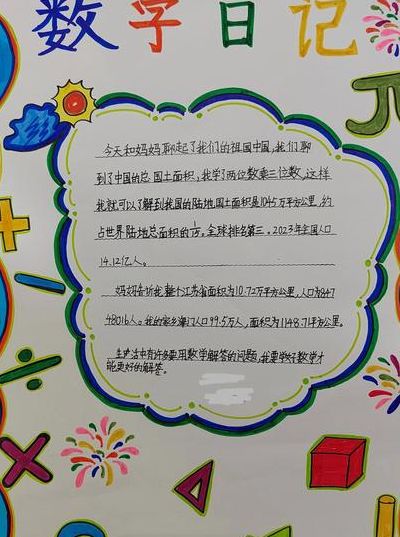 数学日记
今天和妈妈聊起了我们的祖国中国,我们聊
到了中国的总国土面积,我学了两位数乘三位数,这样
我就可以了解到我国的陆地国土面积是1045万平方公里,约
占世界陆地总面积的,全球排名第三。2023年全国人口
14.12亿人。
妈妈告诉我整个江苏省面积为10.72万平方公里,人口为847
48016人。我的家乡海门人口99.5万人,面积为1148.7平方公里。
生活中有许多要用数学解答的问题,我要学好数学才
能更好的解答。